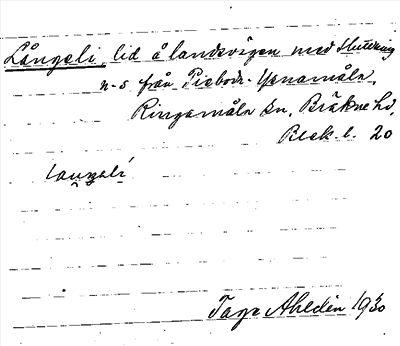 Långeli, lid å landsvägen med sluttning
n-s från Piaboda - Ysnamåla,
Ringamåla sn, Bräkne hd,
Blek. l. 20
laŋgəlí
Tage Ahldén 1930